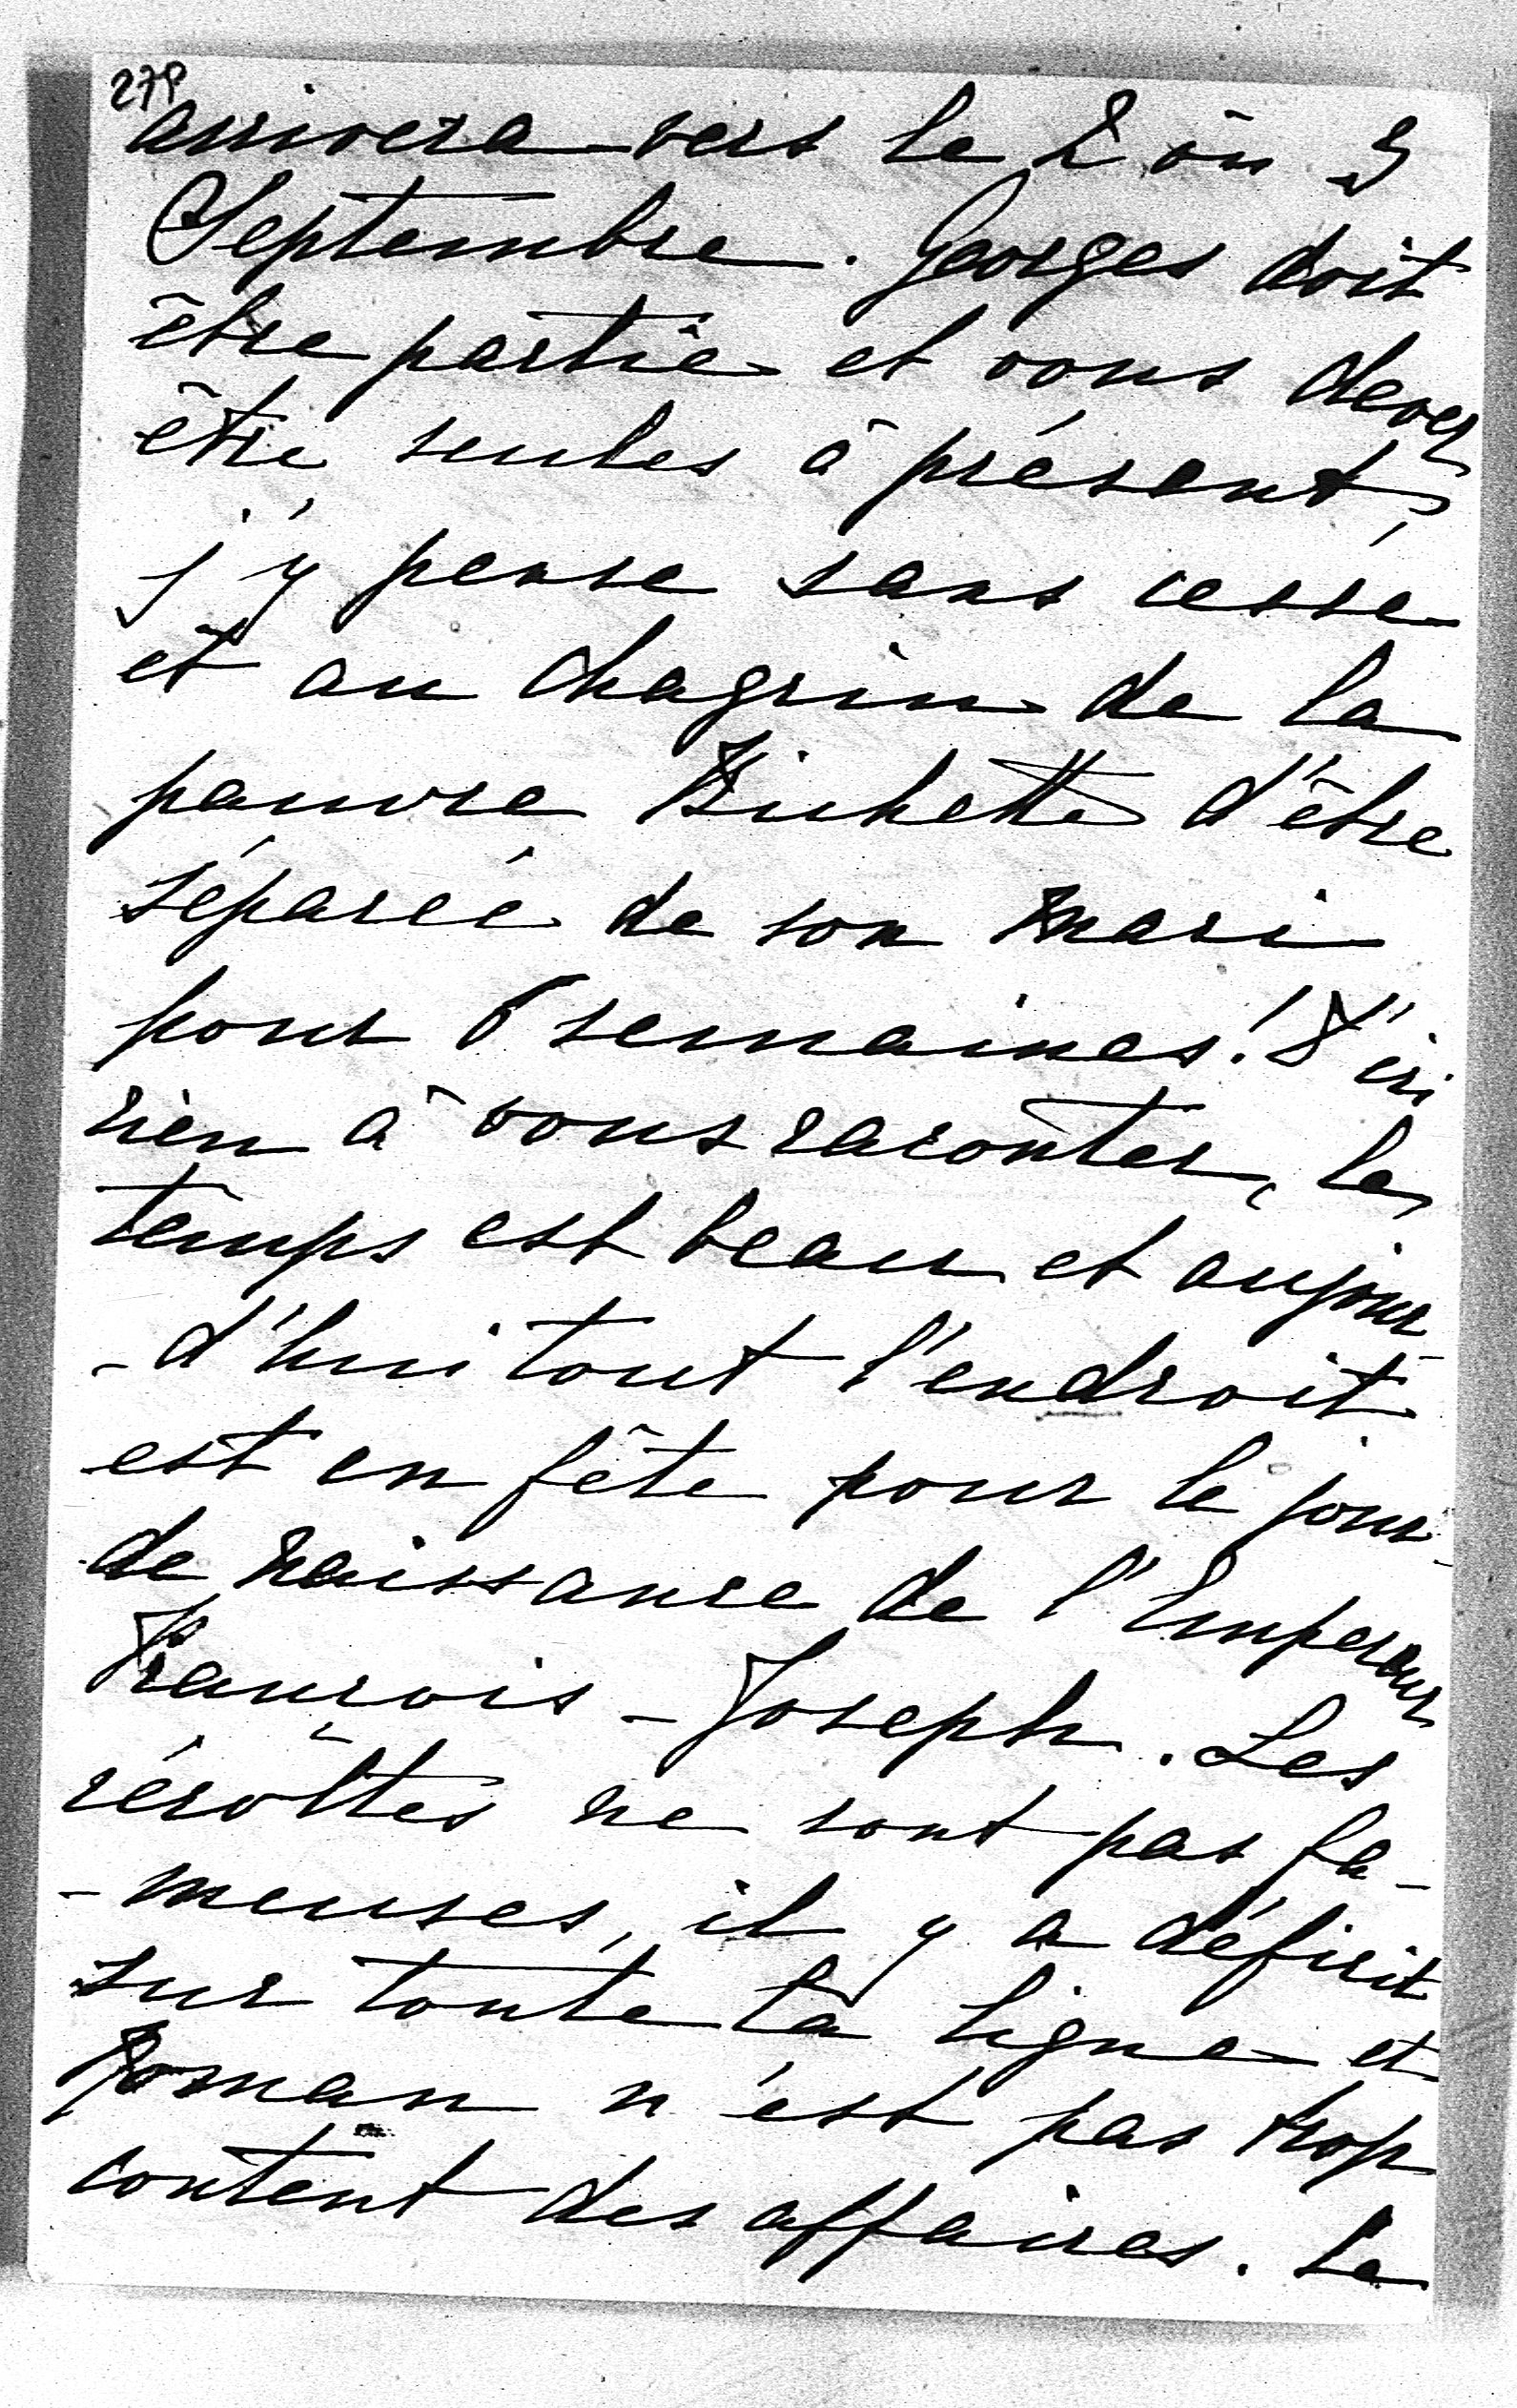 279
arrivera vers le 2 ou 3
Septembre. Georges doit
être partie et vous devez
être seules à présent,
j'y pense sans cesse
et au chagrin de la
pauvre Bichette d'être
séparée de son mari
pour 6 semaines! D'ici
rien à vous raconter, le
temps est beau et aujour-
-d'hui tout l'endroit
est en fête pour le jour
de naissance de l'Empereur
François-Joseph. Les
récoltes ne sont pas fa-
-meuses, il y a déficit
sur toute la ligne et
Roman n'est pas trop
content des affaires. Le